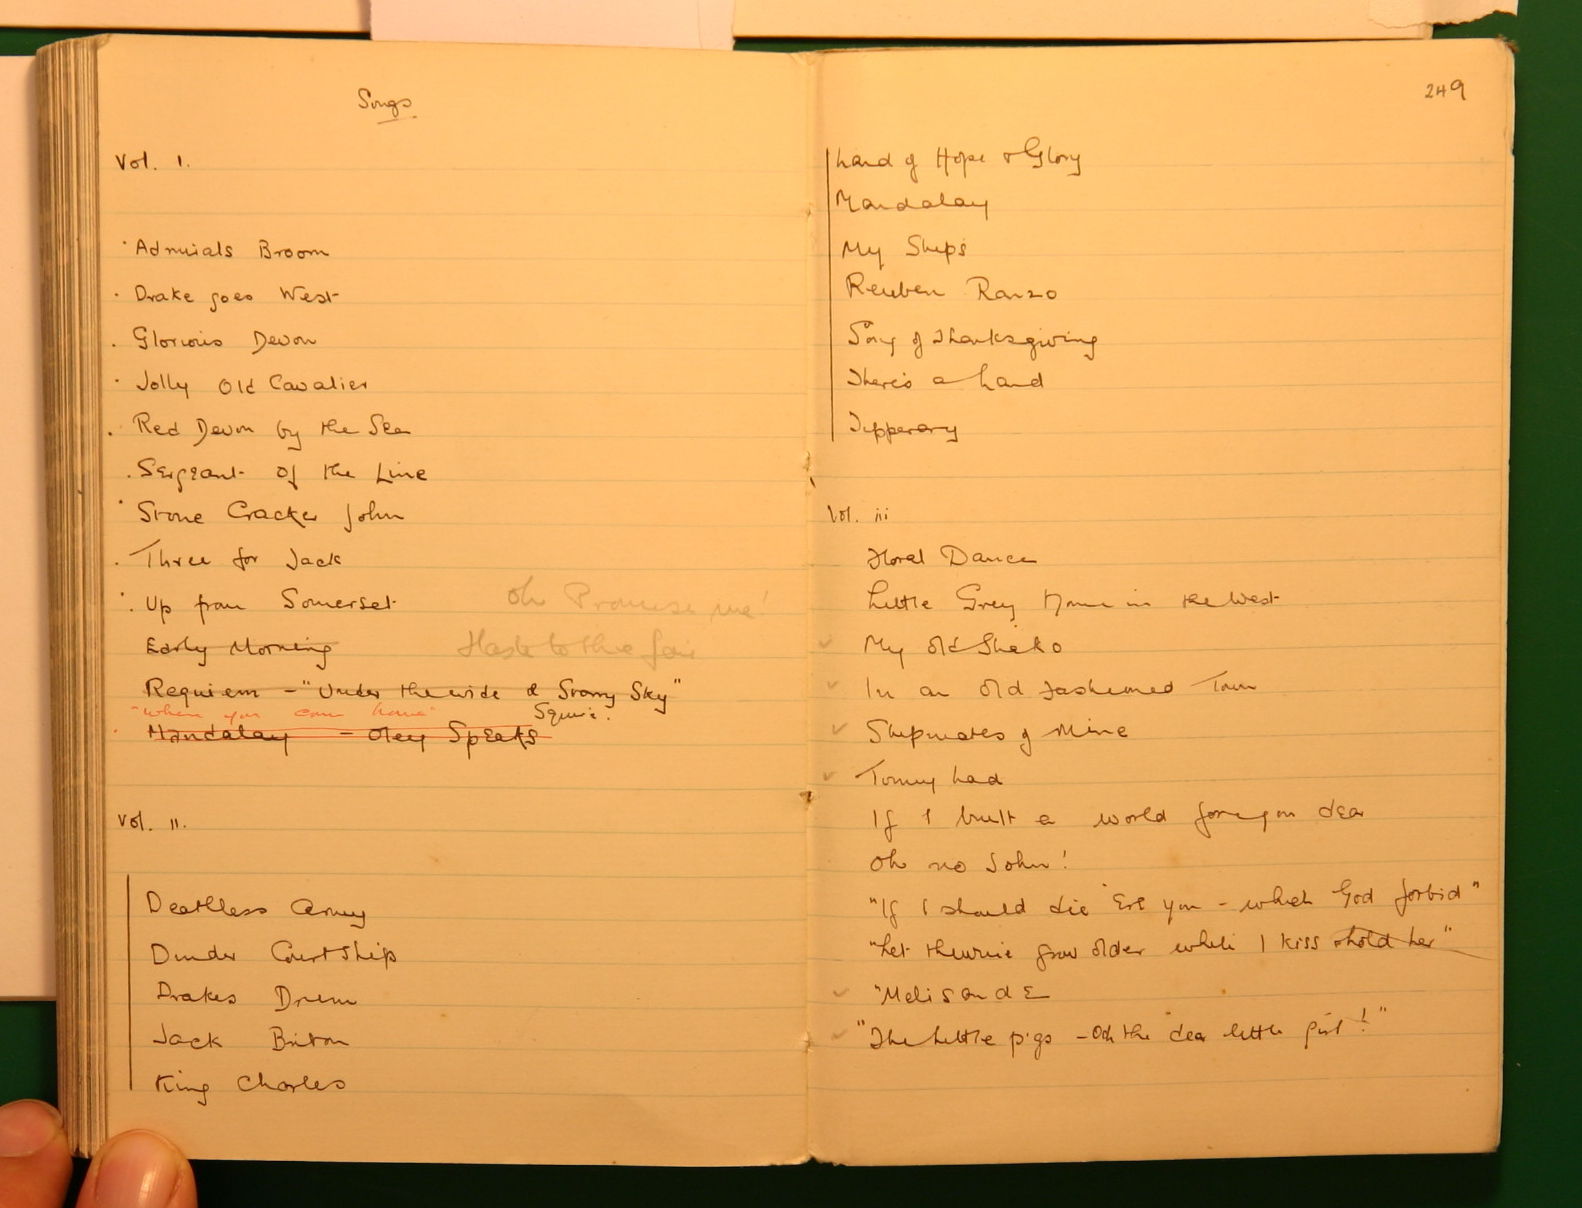 Songs
Vol. I.
Admirals Broom
Drake goes West
Glorious Devon
Jolly Old Cavalier
Red Devon by the Sea
Sergeant of the Line
Stone Cracker John
Three for Jack
Up from Somerset
Oh Promise me!
Early Morning
Haste to the fair
Requiem - "Under the wide & Starry Sky"
"When you come home" Squire.
Mandalay - Oley Speaks
Vol. II.
Deathless Army
Dinder Courtship
Drakes Drum
Jack Briton
King Charles
249
Land of Hope & Glory
Mandalay
My Ships
Reuben Ranzo
Song of Thanksgiving
There's a Land
Tipperary
Vol. iii
Floral Dance
Little Grey Home in the West
My Old Shako
In an Old Fashioned Town
Shipmates of Mine
Tommy Lad
If I built a world for you dear
Oh no John!
"If I should die 'ere you - which God forbid"
"Let the wine grow older while I kiss & hold her"
"Melisande
"The Little pigs - Oh the dear little girl!"